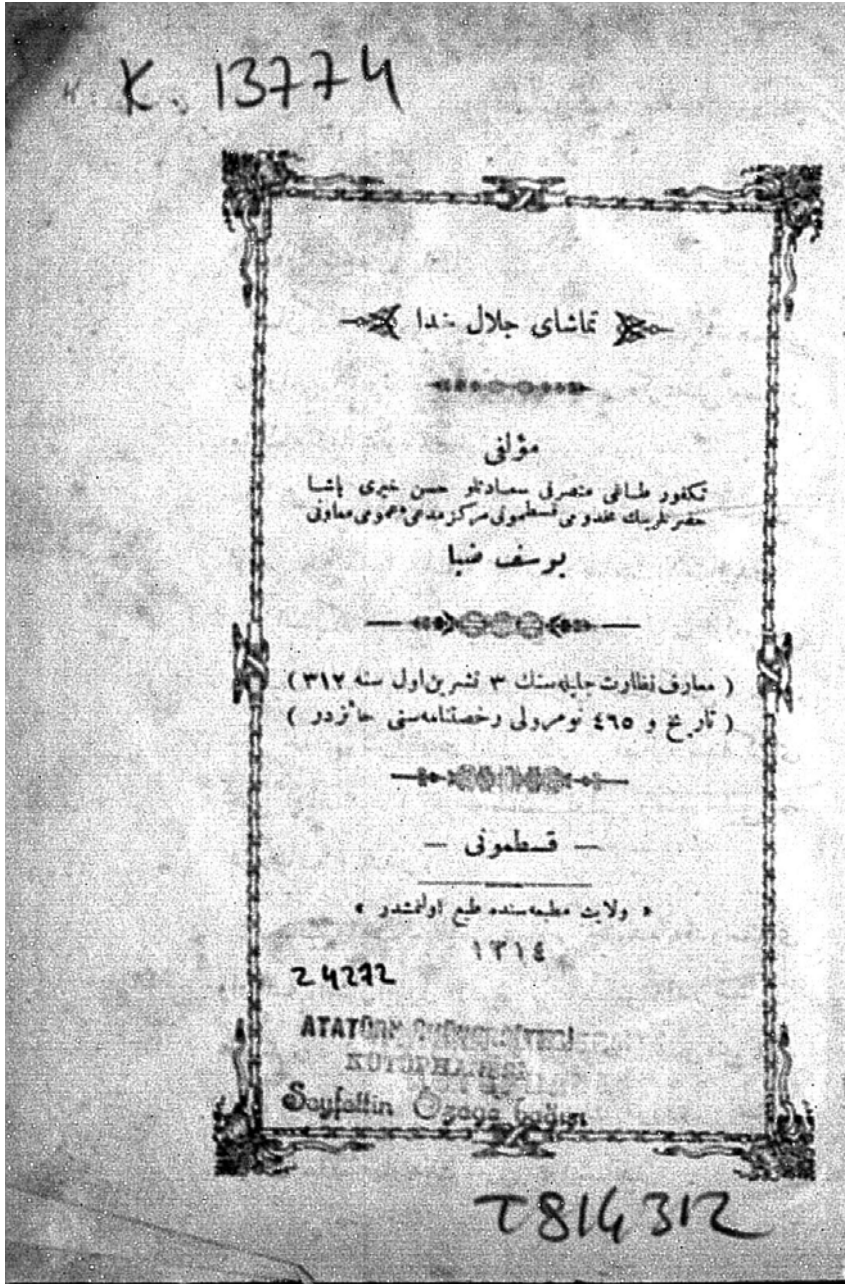 K. 13774
تماشای جلال خدا
مؤلفی
تكفور طاغی متصرفی سعادتلو حسن خیری پاشا
حضرتلرینك مخدومی قسطمونی مركز مدعی عمومی معاونی
یوسف ضیا
( معارف نظارت جلیله‌سنك ٣ تشرین اول سنه ٣١٢ )
( تاریخ و ٤٦٥ نومرولی رخصتنامه‌سنی حائزدر )
— قسطمونی —
« ولایت مطبعه‌سنده طبع اولنمشدر »
١٣١٤
Z 4272
ATATÜRK ÜNİVERSİTESİ
KÜTÜPHANESİ
Seyfettin Özege bağışı
T814312